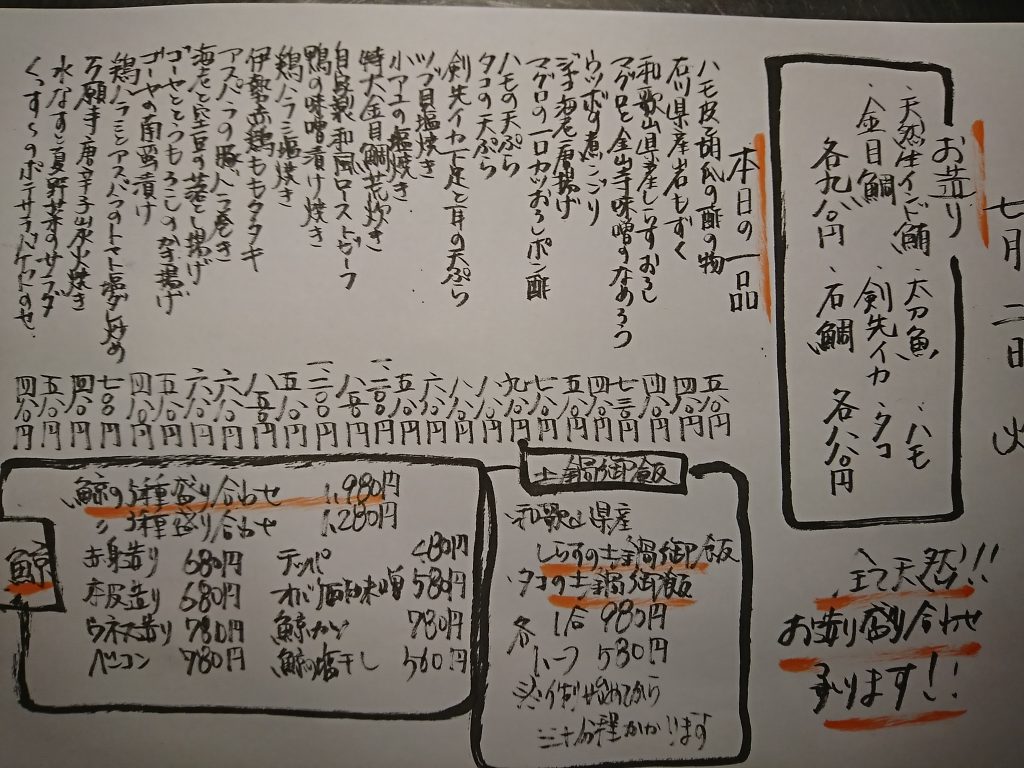 七月二日 火
お造り
・天然生インド鮪 ・太刀魚 ・ハモ
・金目鯛 ・剣先イカ ・タコ
各九八〇円 ・石鯛 各八八〇円
全て天然!!!
お造り盛り合わせ
承ります!!
本日の一品
ハモ皮胡瓜の酢の物 五八〇円
石川県産岩もずく 四八〇円
和歌山県産しらすおろし 四八〇円
マグロと金山寺味噌のなめろう 七三〇円
ウツボの煮こごり 四八〇円
ジャコ海老唐揚げ 五八〇円
マグロの一口カツおろしポン酢 七八〇円
ハモの天ぷら 九八〇円
タコの天ぷら 八八〇円
剣先イカ下足と耳の天ぷら 八八〇円
ツブ貝塩焼き 六八〇円
小アユの塩焼き 五八〇円
特大金目鯛荒炊き 一、二〇〇円
自家製和風ローストビーフ 八五〇円
鴨の味噌漬け焼き 一、二〇〇円
鶏ハラミ塩焼き 五八〇円
伊勢赤鶏ももタタキ 八五〇円
アスパラの豚バラ巻き 六八〇円
海老と空豆の落とし揚げ 六八〇円
ゴーヤととうもろこしのかき揚げ 五八〇円
ゴーヤの南蛮漬け 四八〇円
鶏ハラミとアスパラのトマト塩ダレ炒め 七〇〇円
万願寺唐辛子炭火焼き 四八〇円
水なすと夏野菜のサラダ 五八〇円
のポテサラ 四八〇円
土鍋御飯
・和歌山県産
しらすの土鍋御飯
・タコの土鍋御飯
各 1合 980円
ハーフ 530円
※ 始めてから
三十分程かかります
鯨
鯨の5種盛り合わせ 1,980円
〃 3種盛り合わせ 1,280円
赤身造り 680円
本皮造り 680円
ウネス造り 780円
ベーコン 780円
テッパ 680円
オバケ酢味噌 580円
鯨カツ 780円
鯨の塩干し 560円